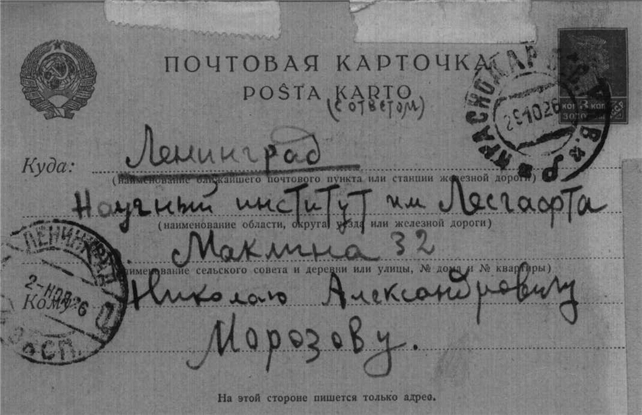 ПОЧТОВАЯ КАРТОЧКА
POŜTA KARTO
(с ответом)
КРАСНОДАР
29.10.26
Куда: Ленинград
(наименование ближайшего почтового пункта или станции железной дороги)
Научный институт им Лесгафта
(наименование области, округа, уезда или железной дороги)
Маклина 32
(наименование сельского совета и деревни или улицы, № дома и № квартиры)
Кому: Николаю Александровичу
Морозову.
ЛЕНИНГРАД
2-НОЯ.26
ЭКСП.
На этой стороне пишется только адрес.